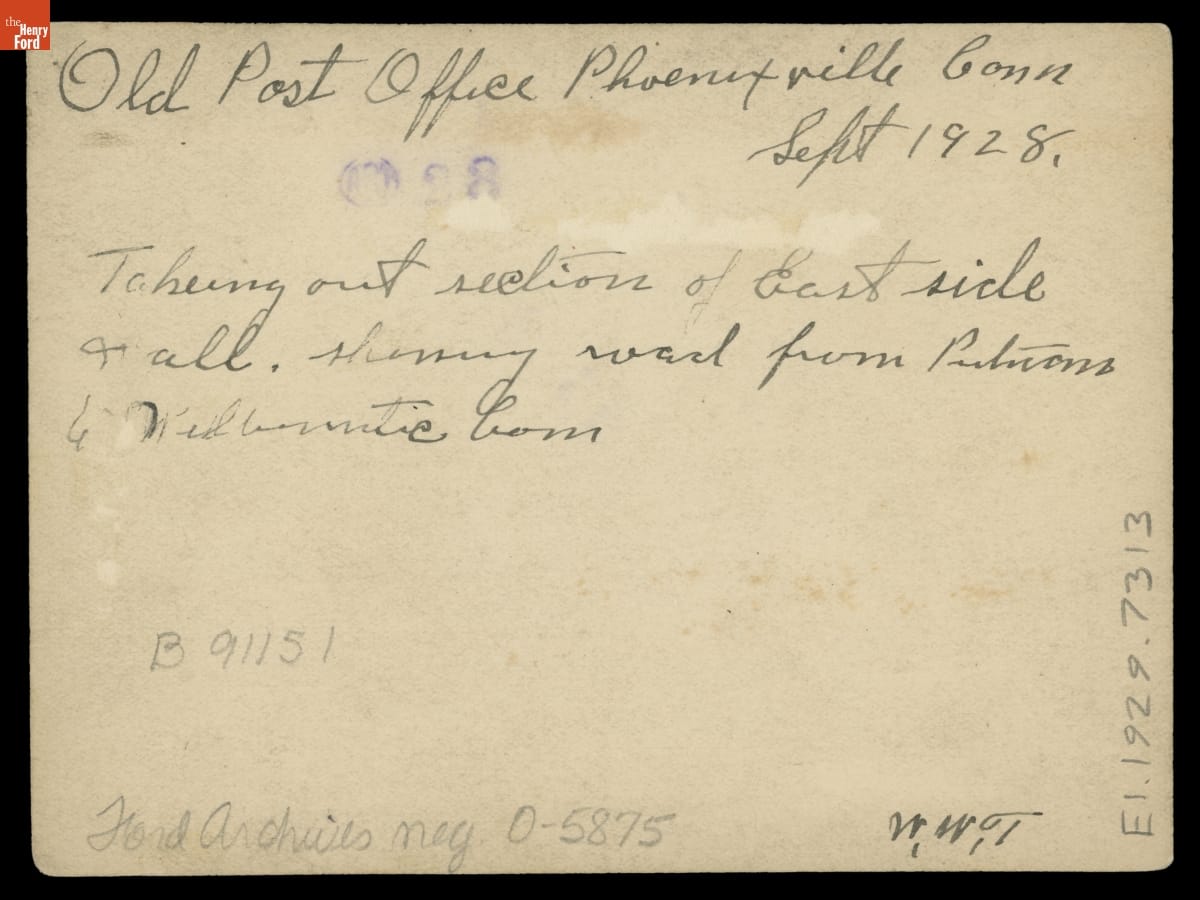 the
Henry
Ford
Old Post Office Phoenixville Conn
Sept 1928.
Takeing out section of East side
& all. showing road from Putnam
to Willimantic Conn
B 91151
Ford Archives neg. O-5875
W.W.T.
E1.1929.7313